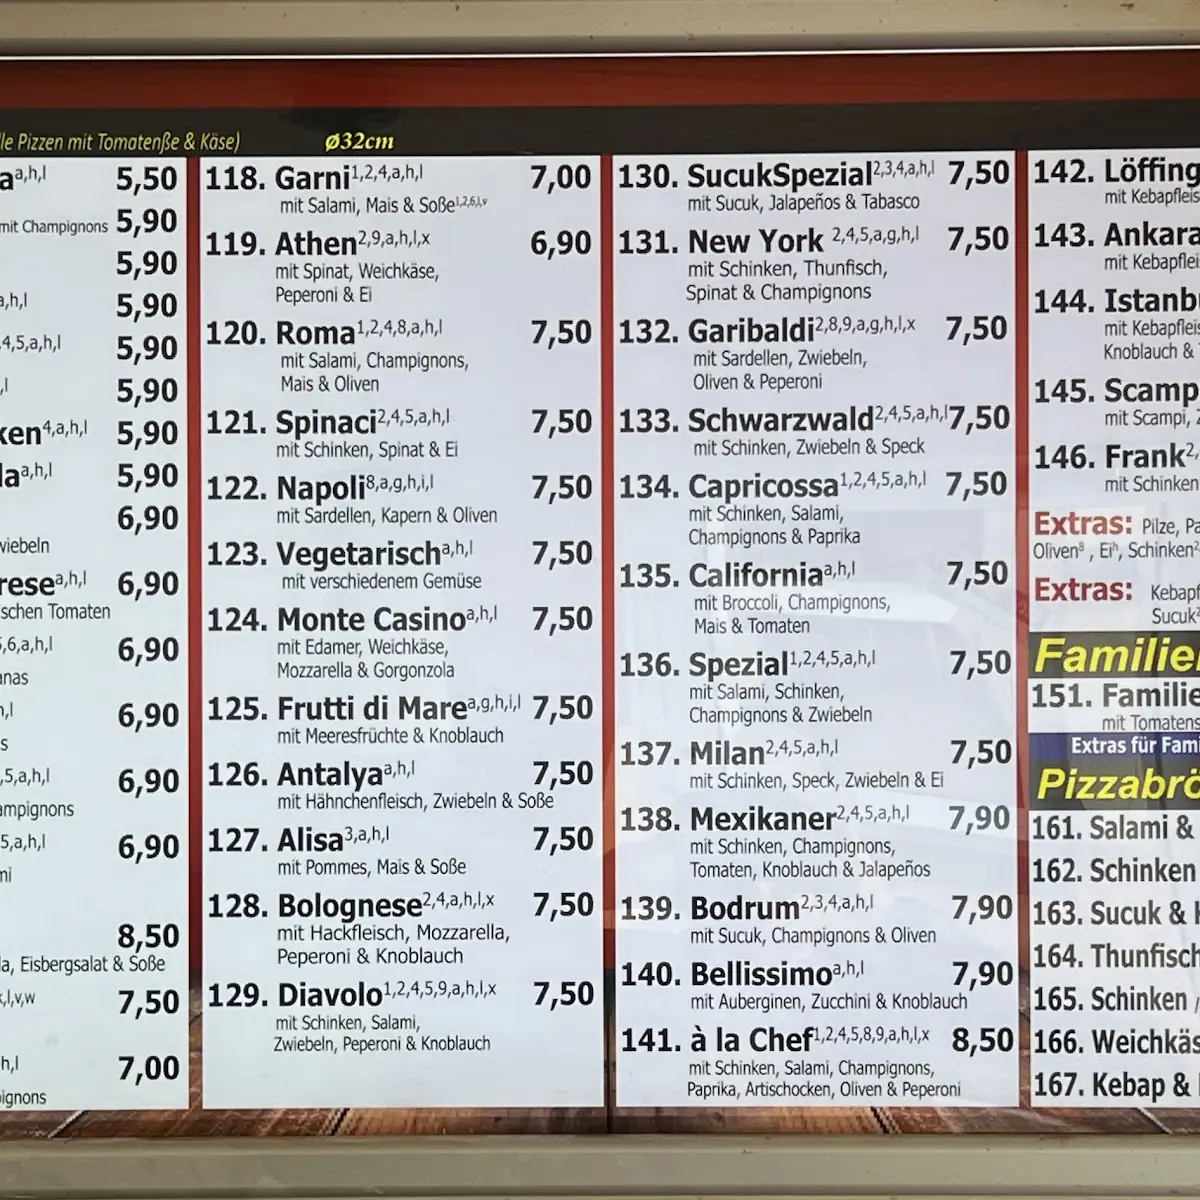 lle Pizzen mit Tomatenße & Käse) ø32cm
a a,h,l 5,50
mit Champignons 5,90
5,90
a,h,l 5,90
4,5,a,h,l 5,90
,l 5,90
ken4,a,h,l 5,90
la a,h,l 5,90
6,90
wiebeln
rese a,h,l 6,90
schen Tomaten
6,a,h,l 6,90
anas
,l 6,90
s
,5,a,h,l 6,90
ampignons
5,a,h,l 6,90
mi
8,50
la, Eisbergsalat & Soße
,l,v,w 7,50
h,l 7,00
ignons
118. Garni1,2,4,a,h,l 7,00
mit Salami, Mais & Soße1,2,6,l,v
119. Athen2,9,a,h,l,x 6,90
mit Spinat, Weichkäse,
Peperoni & Ei
120. Roma1,2,4,8,a,h,l 7,50
mit Salami, Champignons,
Mais & Oliven
121. Spinaci2,4,5,a,h,l 7,50
mit Schinken, Spinat & Ei
122. Napoli8,a,g,h,i,l 7,50
mit Sardellen, Kapern & Oliven
123. Vegetarisch a,h,l 7,50
mit verschiedenem Gemüse
124. Monte Casino a,h,l 7,50
mit Edamer, Weichkäse,
Mozzarella & Gorgonzola
125. Frutti di Mare a,g,h,i,l 7,50
mit Meeresfrüchte & Knoblauch
126. Antalya a,h,l 7,50
mit Hähnchenfleisch, Zwiebeln & Soße
127. Alisa3,a,h,l 7,50
mit Pommes, Mais & Soße
128. Bolognese2,4,a,h,l,x 7,50
mit Hackfleisch, Mozzarella,
Peperoni & Knoblauch
129. Diavolo1,2,4,5,9,a,h,l,x 7,50
mit Schinken, Salami,
Zwiebeln, Peperoni & Knoblauch
130. SucukSpezial2,3,4,a,h,l 7,50
mit Sucuk, Jalapeños & Tabasco
131. New York 2,4,5,a,g,h,l 7,50
mit Schinken, Thunfisch,
Spinat & Champignons
132. Garibaldi2,8,9,a,g,h,l,x 7,50
mit Sardellen, Zwiebeln,
Oliven & Peperoni
133. Schwarzwald2,4,5,a,h,l 7,50
mit Schinken, Zwiebeln & Speck
134. Capricossa1,2,4,5,a,h,l 7,50
mit Schinken, Salami,
Champignons & Paprika
135. California a,h,l 7,50
mit Broccoli, Champignons,
Mais & Tomaten
136. Spezial1,2,4,5,a,h,l 7,50
mit Salami, Schinken,
Champignons & Zwiebeln
137. Milan2,4,5,a,h,l 7,50
mit Schinken, Speck, Zwiebeln & Ei
138. Mexikaner2,4,5,a,h,l 7,90
mit Schinken, Champignons,
Tomaten, Knoblauch & Jalapeños
139. Bodrum2,3,4,a,h,l 7,90
mit Sucuk, Champignons & Oliven
140. Bellissimo a,h,l 7,90
mit Auberginen, Zucchini & Knoblauch
141. à la Chef1,2,4,5,8,9,a,h,l,x 8,50
mit Schinken, Salami, Champignons,
Paprika, Artischocken, Oliven & Peperoni
142. Löffing
mit Kebapfleis
143. Ankara
mit Kebapfleis
144. Istanbu
mit Kebapfleis
Knoblauch &
145. Scamp
mit Scampi,
146. Frank2,
mit Schinken
Extras: Pilze, Pa
Oliven8 , Eih, Schinken2
Extras: Kebapf
Sucuk2
Familie
151. Familie
mit Tomatens
Extras für Fami
Pizzabrö
161. Salami &
162. Schinken
163. Sucuk &
164. Thunfisch
165. Schinken
166. Weichkäs
167. Kebap &